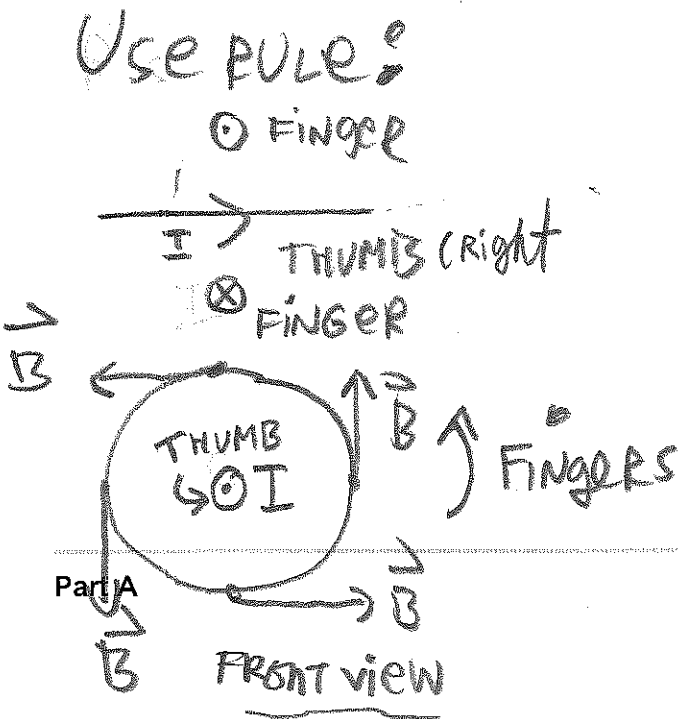 Use RULe:
⊙ FiNgeR
I
THUMB (Right
⊗
FiNGeR
B
B
THUMB
⊙ I
FiNgeRs
Part A
B
B
FRONT VieW